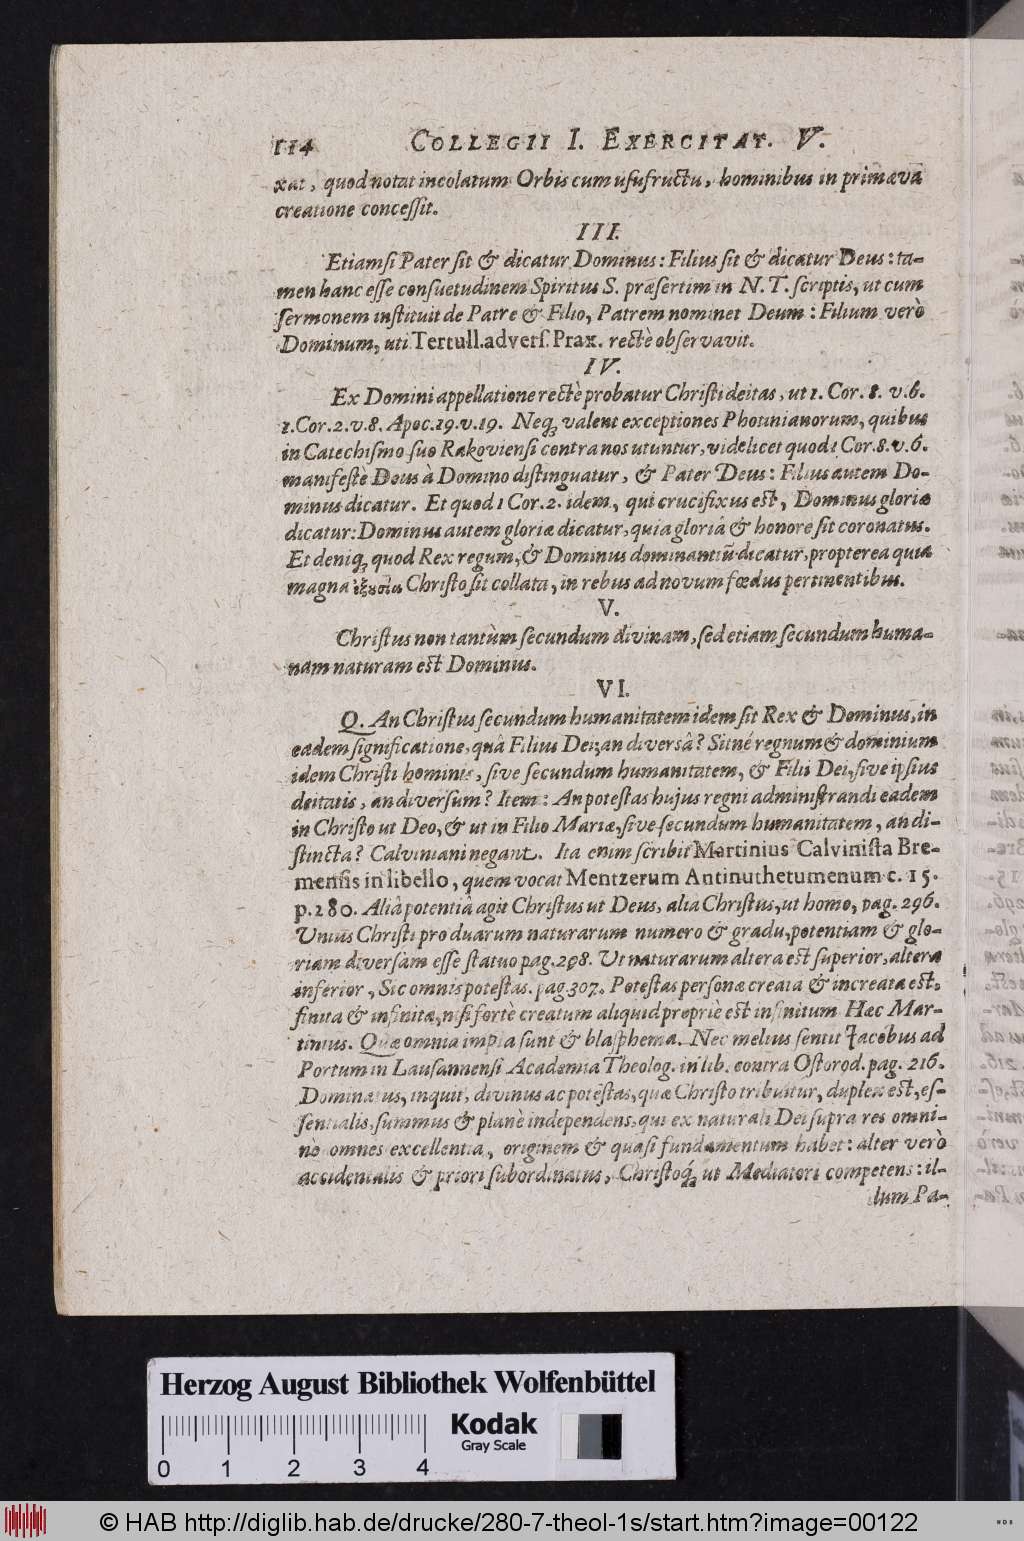 114 COLLEGII I. EXERCITAT. V.
xat, quod notat incolatum Orbis cum usufructu, hominibus in primæva
creatione concessit.
III.
Etiamsi Pater sit & dicatur Dominus: Filius sit & dicatur Deus: ta-
men hanc esse consuetudinem Spiritus S. præsertim in N. T. scriptis, ut cum
sermonem instituit de Patre & Filio, Patrem nominet Deum: Filium verò
Dominum, uti Tertull. advers. Prax. rectè observavit.
IV.
Ex Domini appellatione rectè probatur Christi deitas, ut 1. Cor. 8. v. 6.
1. Cor. 2. v. 8. Apoc. 19. v. 19. Neq; valent exceptiones Photinianorum, quibus
in Catechismo suo Rakoviensi contra nos utuntur, videlicet quod 1 Cor. 8. v. 6.
manifestè Deus à Domino distinguatur, & Pater Deus: Filius autem Do-
minus dicatur. Et quod 1 Cor. 2. idem, qui crucifixus est, Dominus gloriæ
dicatur: Dominus autem gloriæ dicatur, quia gloriâ & honore sit coronatus.
Et deniq; quod Rex regum, & Dominus dominantiũ dicatur, propterea quia
magna ἐξουσία Christo sit collata, in rebus ad novum fœdus pertinentibus.
V.
Christus non tantùm secundum divinam, sed etiam secundum huma-
nam naturam est Dominus.
VI.
Q. An Christus secundum humanitatem idem sit Rex & Dominus, in
eadem significatione, quâ Filius Dei; an diversâ? Sitné regnum & dominium
idem Christi hominis, sive secundum humanitatem, & Filii Dei, sive ipsius
deitatis, an diversum? Item: An potestas hujus regni administrandi eadem
in Christo ut Deo, & ut in Filio Mariæ, sive secundum humanitatem, an di-
stincta? Calviniani negant. Ita enim scribit Martinius Calvinista Bre-
mensis in libello, quem vocat Mentzerum Antinuthetumenum c. 15.
p. 280. Aliâ potentiâ agit Christus ut Deus, alia Christus, ut homo, pag. 296.
Unius Christi pro duarum naturarum numero & gradu, potentiam & glo-
riam diversam esse statuo pag. 298. Ut naturarum altera est superior, altera
inferior, Sic omnis potestas. pag 307. Potestas personæ creata & increata est,
finita & infinita, nisi fortè creatum aliquid propriè est infinitum Hæc Mar-
tinius. Quæ omnia impia sunt & blasphema. Nec melius sentit Jacobus ad
Portum in Lausannensi Academia Theolog. in lib. contra Ostorod. pag. 216.
Dominatus, inquit, divinus ac potestas, quæ Christo tribuitur, duplex est, es-
sentialis, summus & planè independens, qui ex naturali Dei supra res omni-
nò omnes excellentia, originem & quasi fundamentum habet: alter verò
accidentalis & priori subordinatus, Christoq; ut Mediatori competens: il-
lum Pa-
Herzog August Bibliothek Wolfenbüttel
Kodak
Gray Scale
0 1 2 3 4
© HAB http://diglib.hab.de/drucke/280-7-theol-1s/start.htm?image=00122